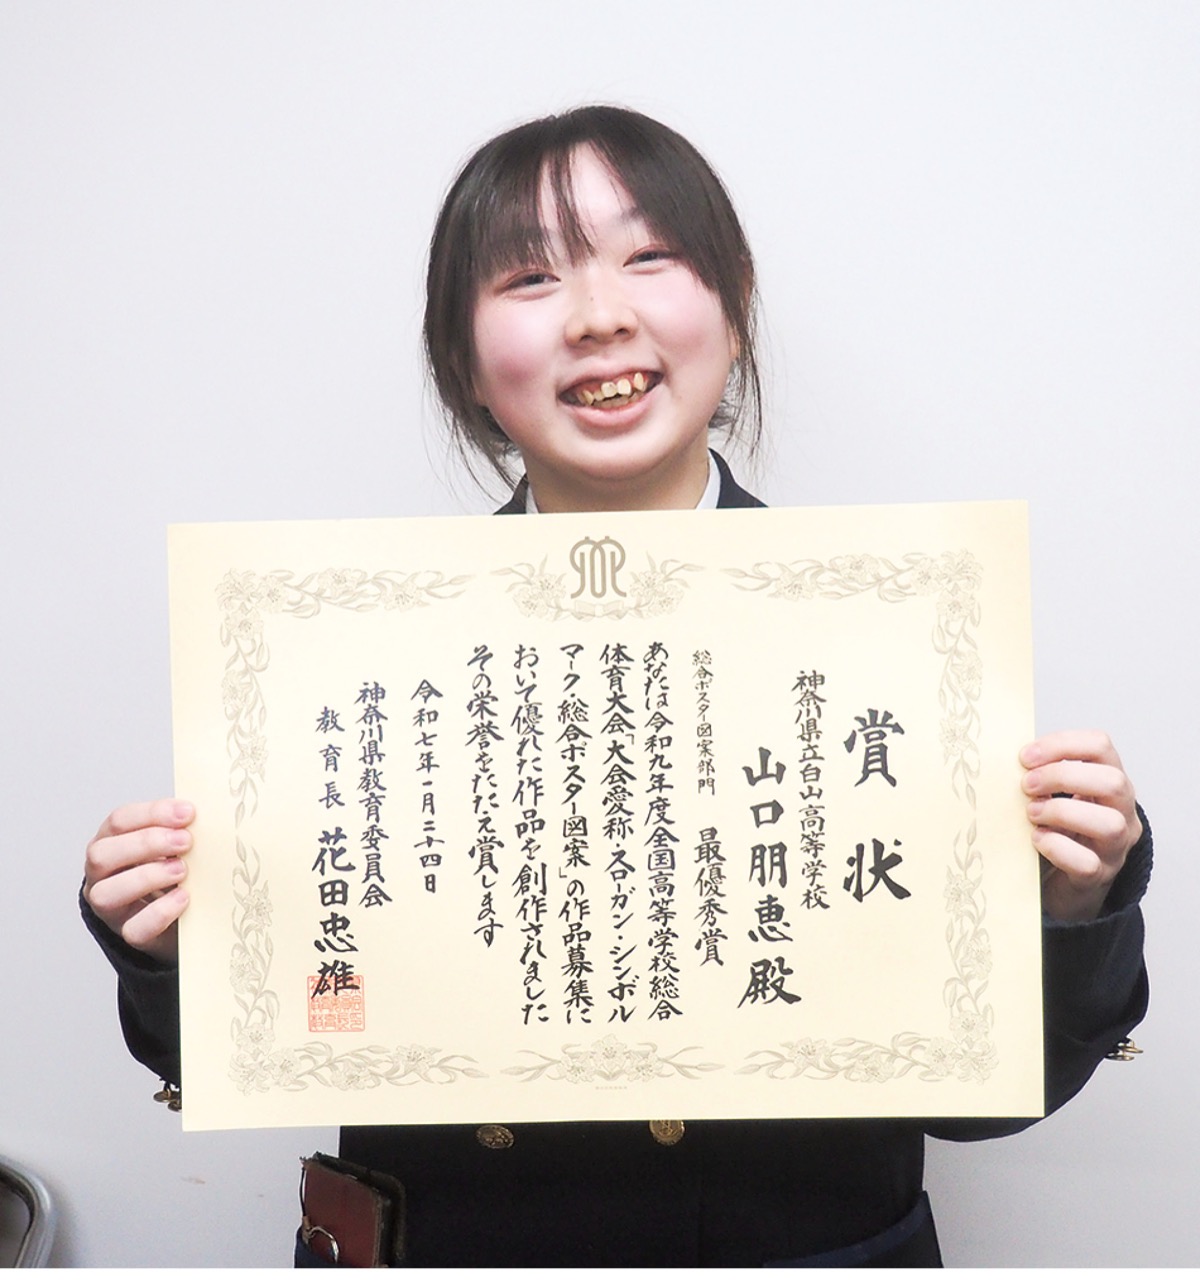 賞状
神奈川県立白山高等学校
山口朋恵殿
総合ポスター図案部門 最優秀賞
あなたは令和九年度全国高等学校総合
体育大会「大会愛称・スローガン・シンボル
マーク・総合ポスター図案」の作品募集に
おいて優れた作品を創作されました
その栄誉をたたえ賞します
令和七年一月二十四日
神奈川県教育委員会
教育長 花田忠雄